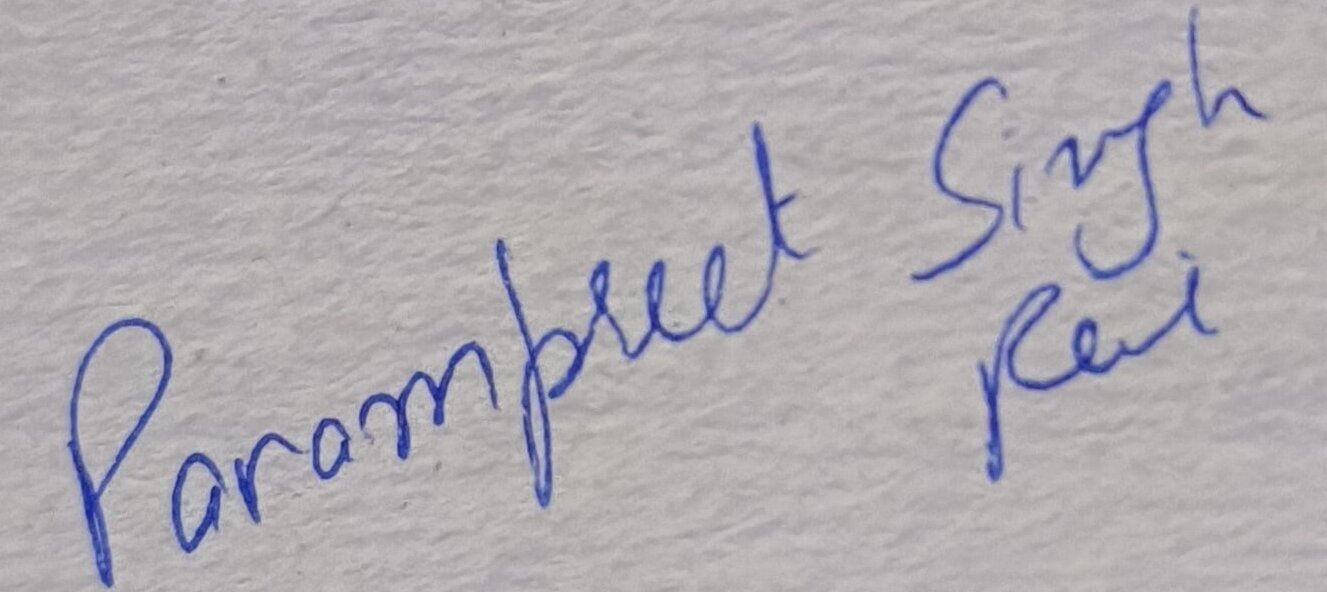 Parampreet Singh
Rai